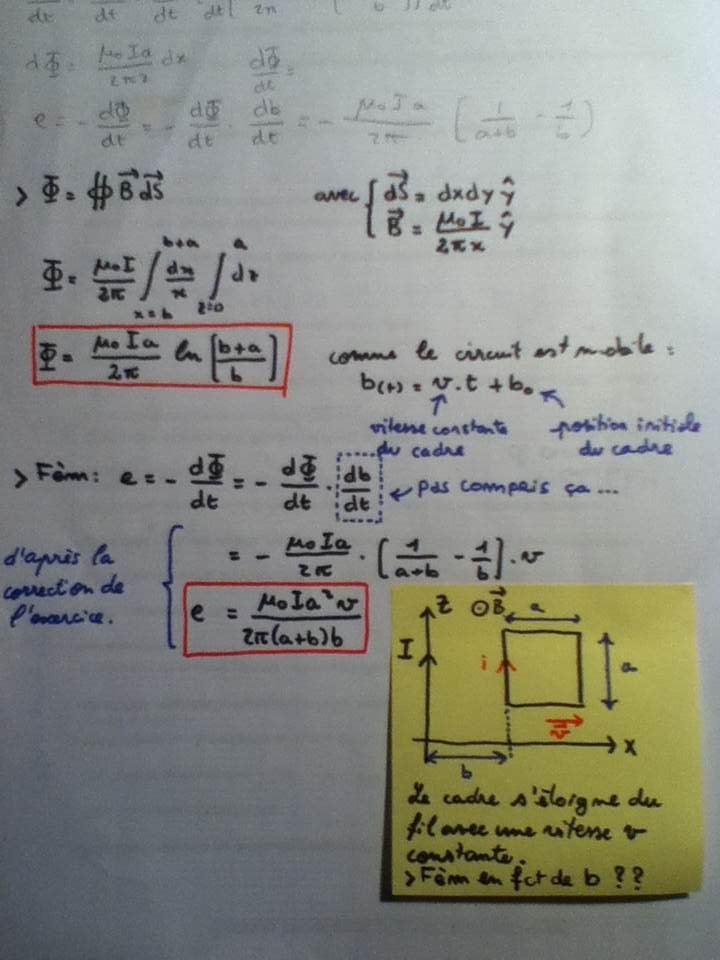 dt dt dt dt 2π b dt
dΦ = μ₀Ia/2πx dx dΦ/dt =
e = - dΦ/dt = - dΦ/dt . db/dt = - μ₀Ia/2π [1/(a+b) - 1/b]
> Φ = ∯ B⃗ dS⃗ avec { dS⃗ = dxdy ŷ
B⃗ = μ₀I/2πx ŷ
Φ = μ₀I/2π ∫_{x=b}^{b+a} dx/x ∫_{z=0}^{a} dz
Φ = μ₀Ia/2π ln [(b+a)/b]
comme le circuit est mobile :
b(t) = v.t + b₀
vitesse constante
du cadre
position initiale
du cadre
> Fèm: e = - dΦ/dt = - dΦ/dt . db/dt ← pas compris ça ...
d'après la
correction de
l'exercice.
= - μ₀Ia/2π . [1/(a+b) - 1/b] . v
e = μ₀Ia²v/2π(a+b)b
Z ⊙B⃗ a
I i a
v⃗
X
b
Le cadre s'éloigne du
fil avec une vitesse v
constante.
> Fèm en fct de b ??